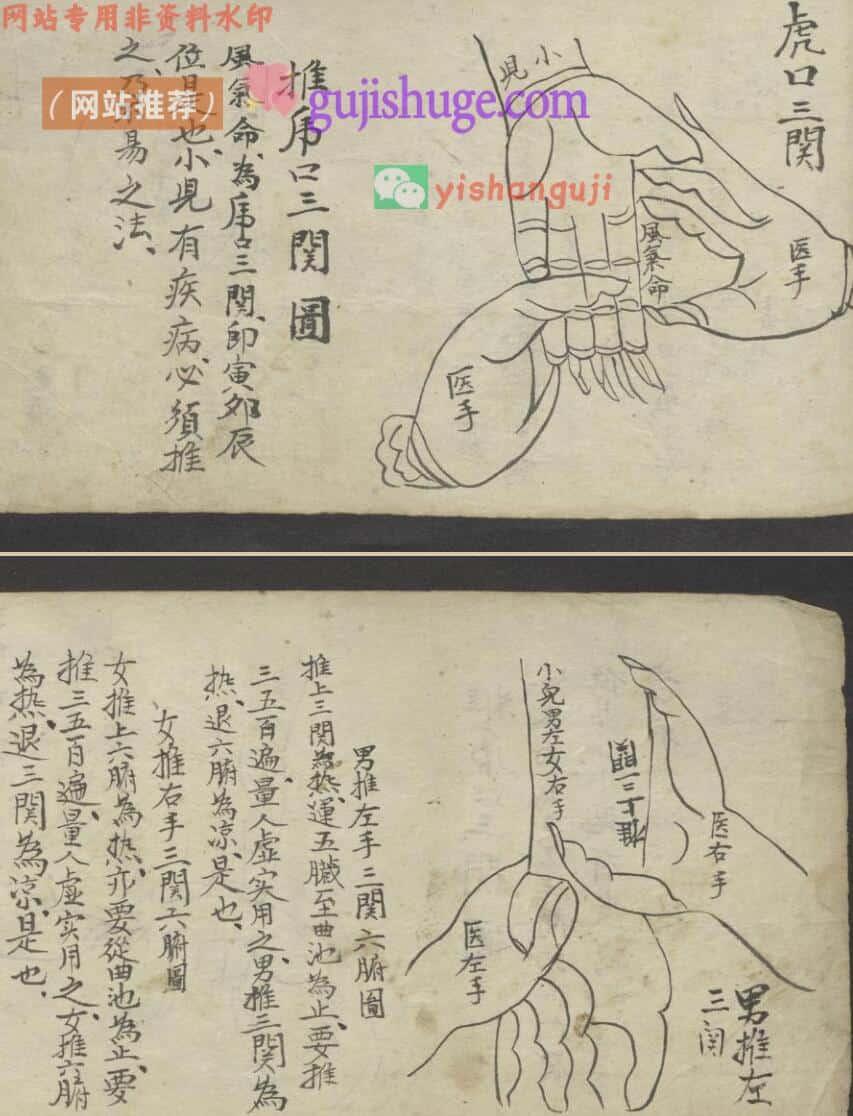 网站专用非资料水印
（网站推荐）
gujishuge.com
yishanguji
虎口三関
小児
医手
風氣命
医手
推虎口三関圖
風氣命、為虎口三関、即寅夘辰
位是也、小児有疾病、必須推
之乃
易之法、
男推左
三関
医右手
推上三関
小兒男左女右手
医左手
男推左手三関六腑圖
推上三関為热、運五臓至曲池為止、要推
三五百遍、量人虛实用之、男推三関為
热、退六腑為凉、是也、
女推右手三関六腑圖
女推上六腑為热、亦要從曲池為止、要
推三五百遍、量人虛实用之、女推六腑
為热、退三関為凉、是也、